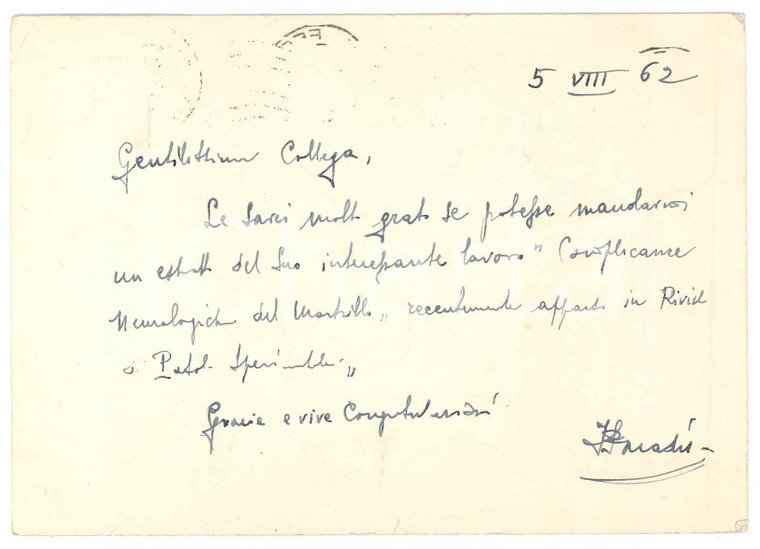 5 VIII 62
Gentilissimo Collega,
Le sarei molto grato se potesse mandarmi
un estratto del Suo interessante lavoro "Complicanze
Neurologiche del Morbillo" recentemente apparso in
Patol. Sperimentale"
Grazie e vive Congratulazioni